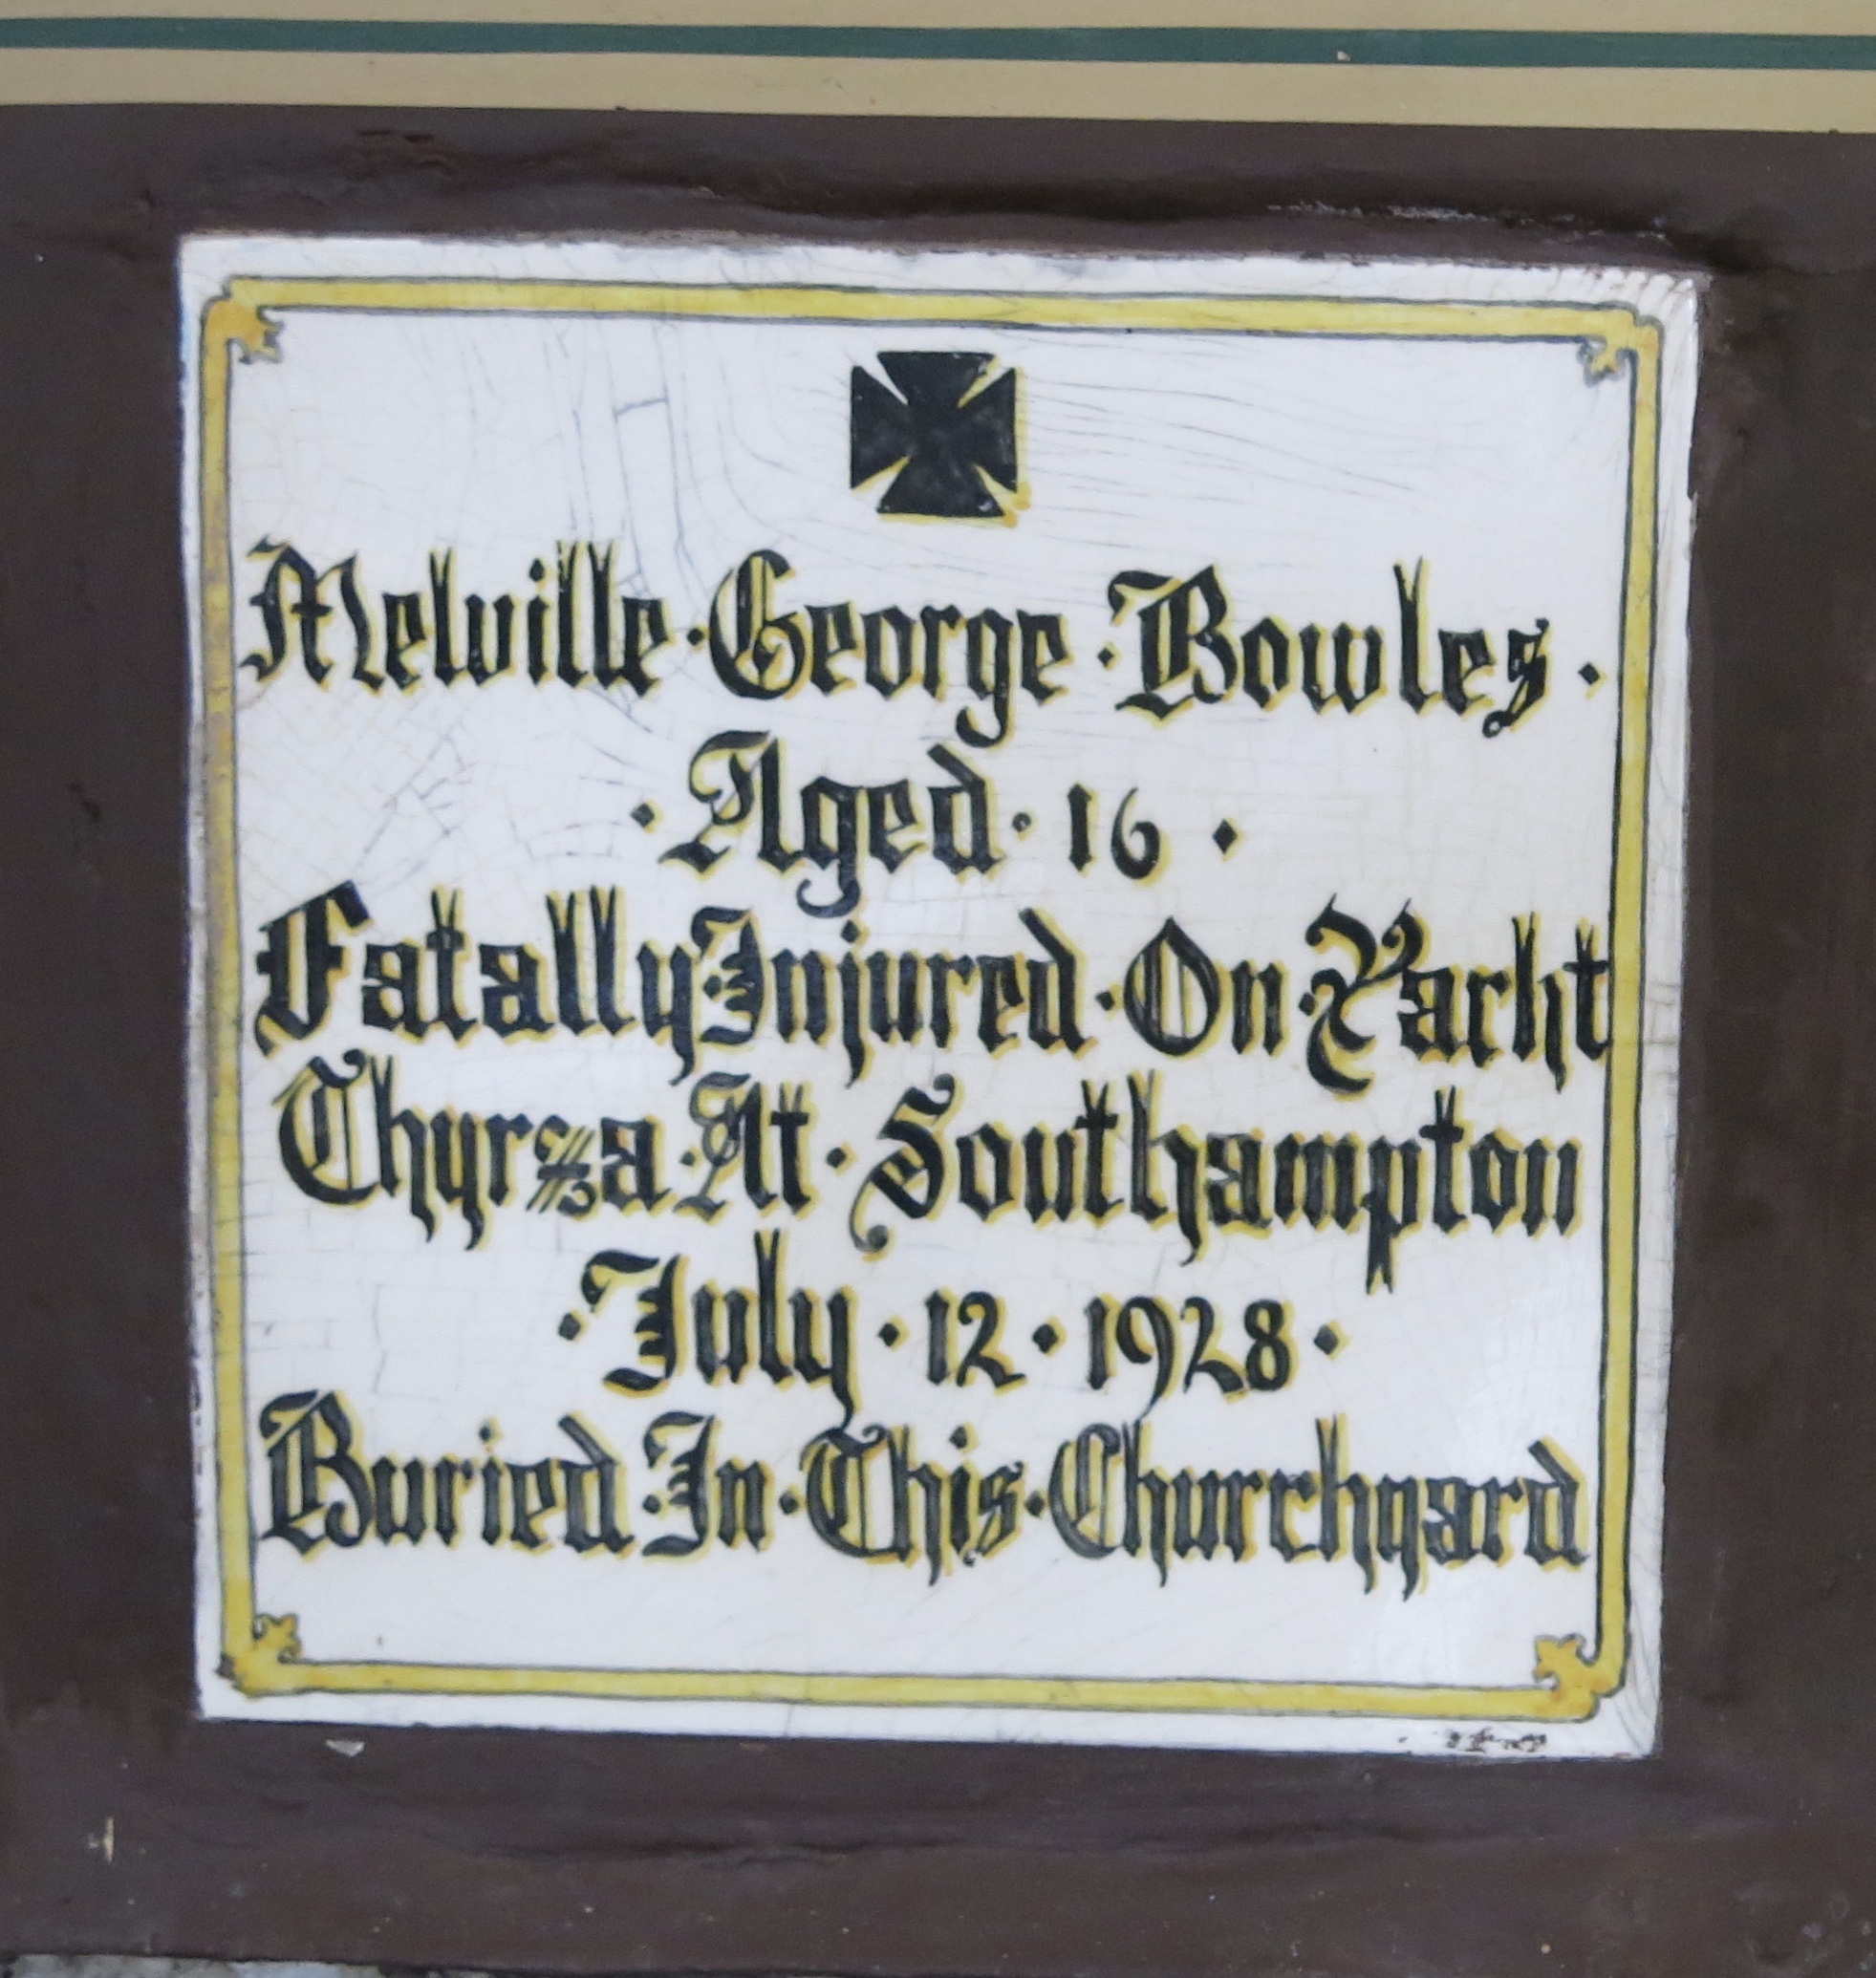 Melville · George · Bowles ·
· Aged · 16 ·
Fatally · Injured · On · Yacht
Thyrza · At · Southampton
· July · 12 · 1928 ·
Buried · In · This · Churchyard